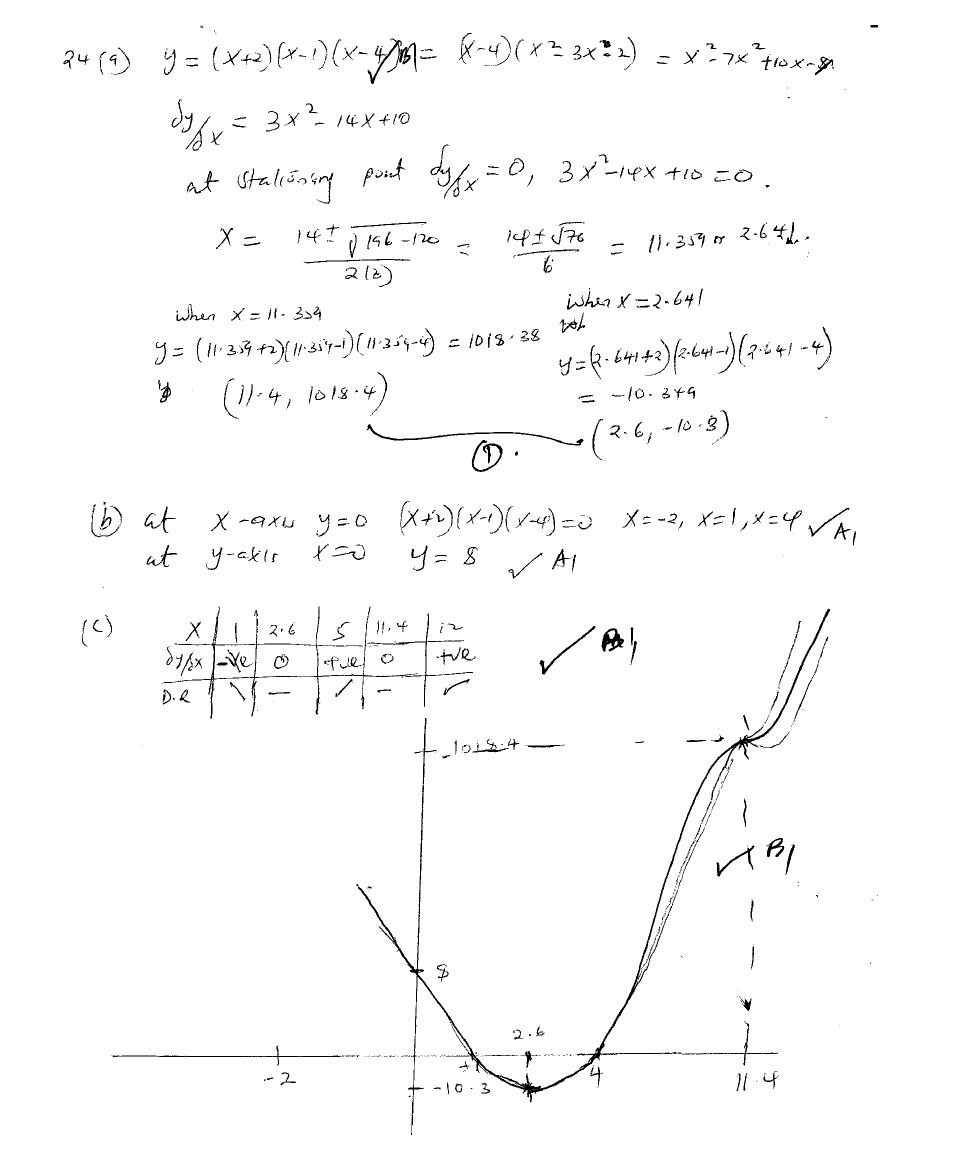 24 (a) y = (x+2)(x-1)(x-4) B1 = (x-4)(x² - 3x + 2) = x³ - 7x² + 10x - 8
dy/dx = 3x² - 14x + 10
at stationary point dy/dx = 0, 3x² - 14x + 10 = 0.
x = 14 ± √196 - 120 / 2(3) = 14 ± √76 / 6 = 11.359 or 2.641.
when x = 11.359
when x = 2.641
y = (11.359+2)(11.359-1)(11.359-4) = 1018.38
y = (2.641+2)(2.641-1)(2.641-4)
= -10.349
(11.4, 1018.4)
(2.6, -10.3)
(b) at x-axis y=0 (x+2)(x-1)(x-4)=0 x=-2, x=1, x=4 ✓ A1
at y-axis x=0 y=8 ✓ A1
(c)
x | 1 | 2.6 | 5 | 11.4 | 12
dy/dx | -ve | 0 | +ve | 0 | +ve
D.R \ — / — /
✓ B1
1018.4
✓ B1
8
2.6
-2 +1 4 11.4
-10.3